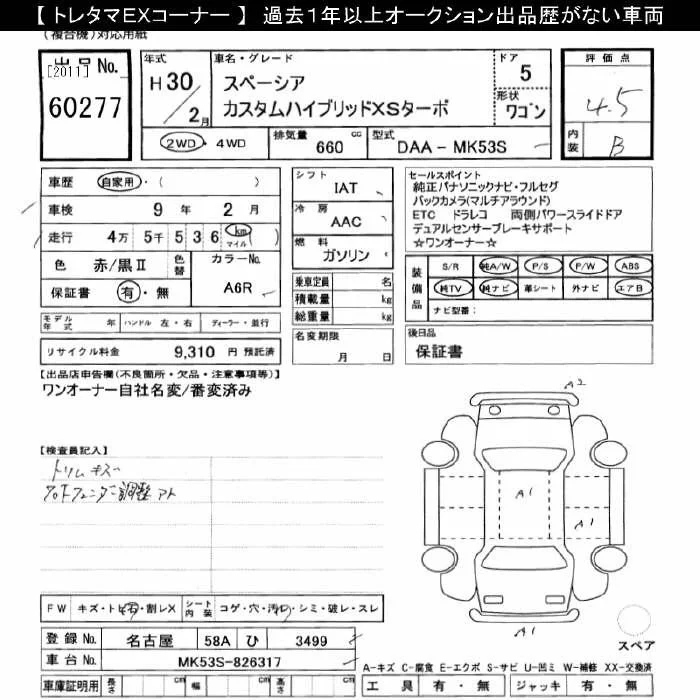 【 トレタマEXコーナー 】 過去1年以上オークション出品歴がない車両
(複合機)対応用紙
出品 No.
[2011]
60277
年式
H 30 / 2月
車名・グレード
スペーシア
カスタムハイブリッドXSターボ
ドア
5
形状
ワゴン
2WD ・ 4WD
排気量 660 cc
型式 DAA - MK53S
評価点
4.5
内装 B
車歴 自家用・( )
車検 9 年 2 月
走行 4万 5千 5 3 6 km マイル ( )
色 赤/黒Ⅱ 色替
カラーNo.
A6R
保証書 有・無
モデル年式 年 ハンドル 左・右 ディーラー・並行
リサイクル料金 9,310 円 預託済
シフト IAT
冷房 AAC
燃料 ガソリン
乗車定員 名
積載量 kg
総重量 kg
名変期限
月 日
セールスポイント
純正パナソニックナビ・フルセグ
バックカメラ(マルチアラウンド)
ETC ドラレコ 両側パワースライドドア
デュアルセンサーブレーキサポート
☆ワンオーナー☆
装備品
S/R 純A/W P/S P/W ABS
純TV 純ナビ 革シート 外ナビ エアB
ナビ型番:
後日品
保証書
【出品店申告欄(不良箇所・欠品・注意事項等)】
ワンオーナー自社名変/番変済み
【検査員記入】
トリムキズ
フロントフェンダー調整アト
A2
A1
A1
A1
スペア
FW キズ・トビ石・割レX
シート内装 コゲ・穴・汚レ・シミ・破レ・スレ
登録 No. 名古屋 58A ひ 3499
車台 No. MK53S-826317
車庫証明用 長さ cm 幅 cm 高さ cm
A-キズ C-腐食 E-エクボ S-サビ U-凹ミ W-補修 XX-交換済
工具 有・無 ジャッキ 有・無